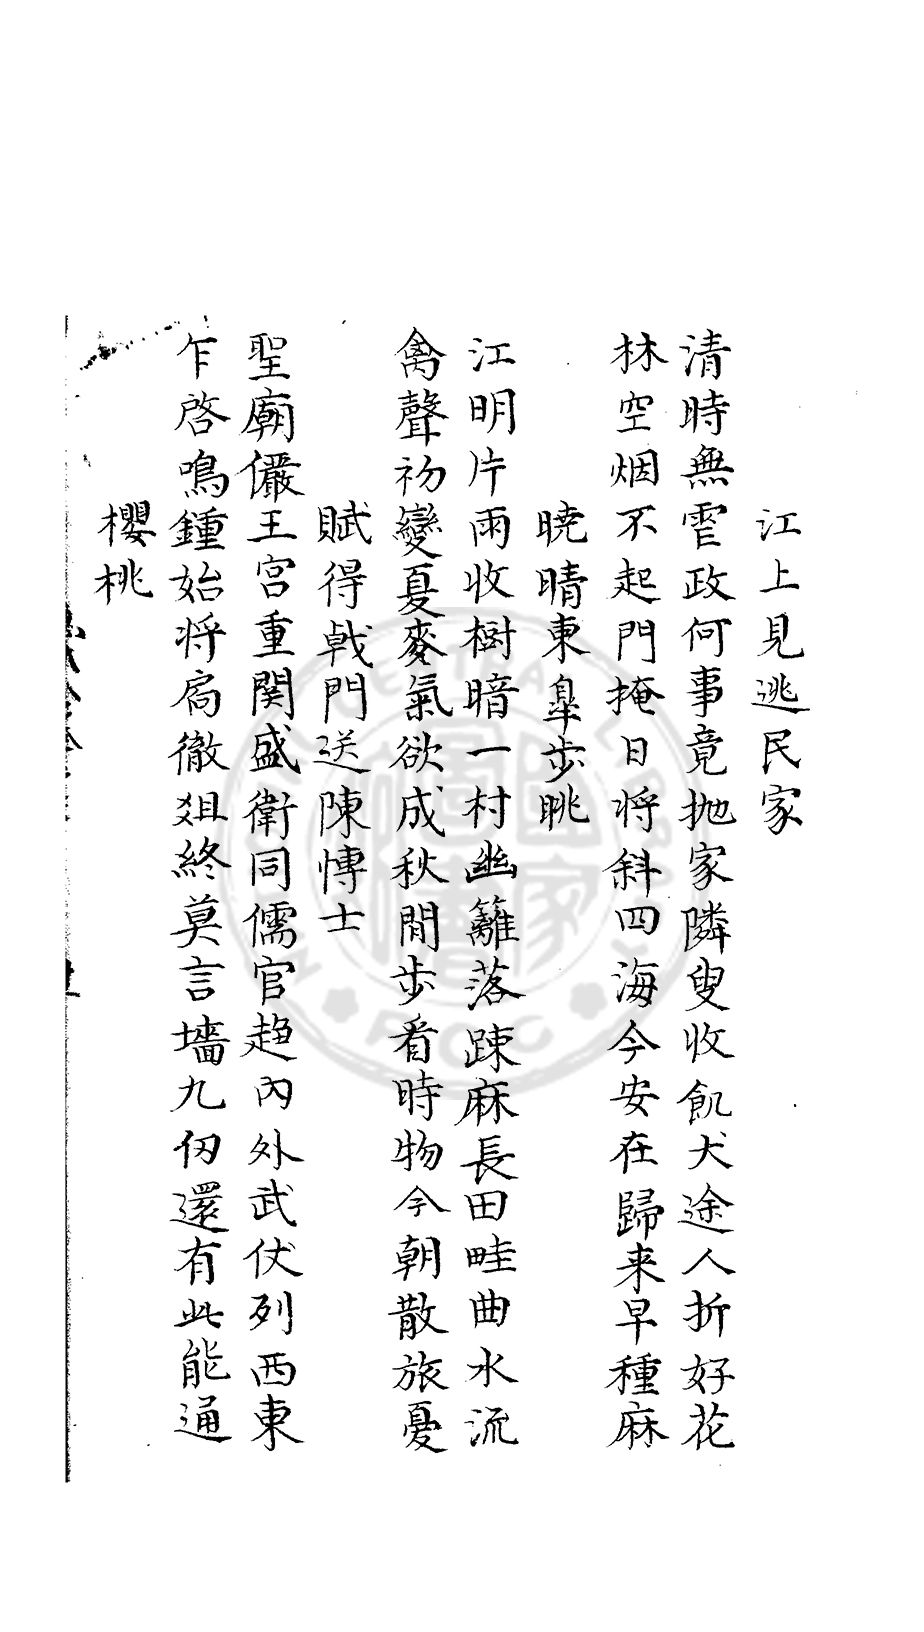 江上見逃民家
清時無虐政何事竟抛家隣叟收飢犬途人折好花
林空烟不起門掩日将斜四海今安在歸来早種麻
曉晴東皐步眺
江明片雨收樹暗一村幽籬落踈麻長田畦曲水流
禽聲初變夏麥氣欲成秋閒步看時物今朝散旅憂
賦得戟門送陳愽士
聖廟儼王宮重関盛衛同儒官趍內外武仗列西東
乍啓鳴鍾始将扃徹俎終莫言墻九仞還有此能通
櫻桃